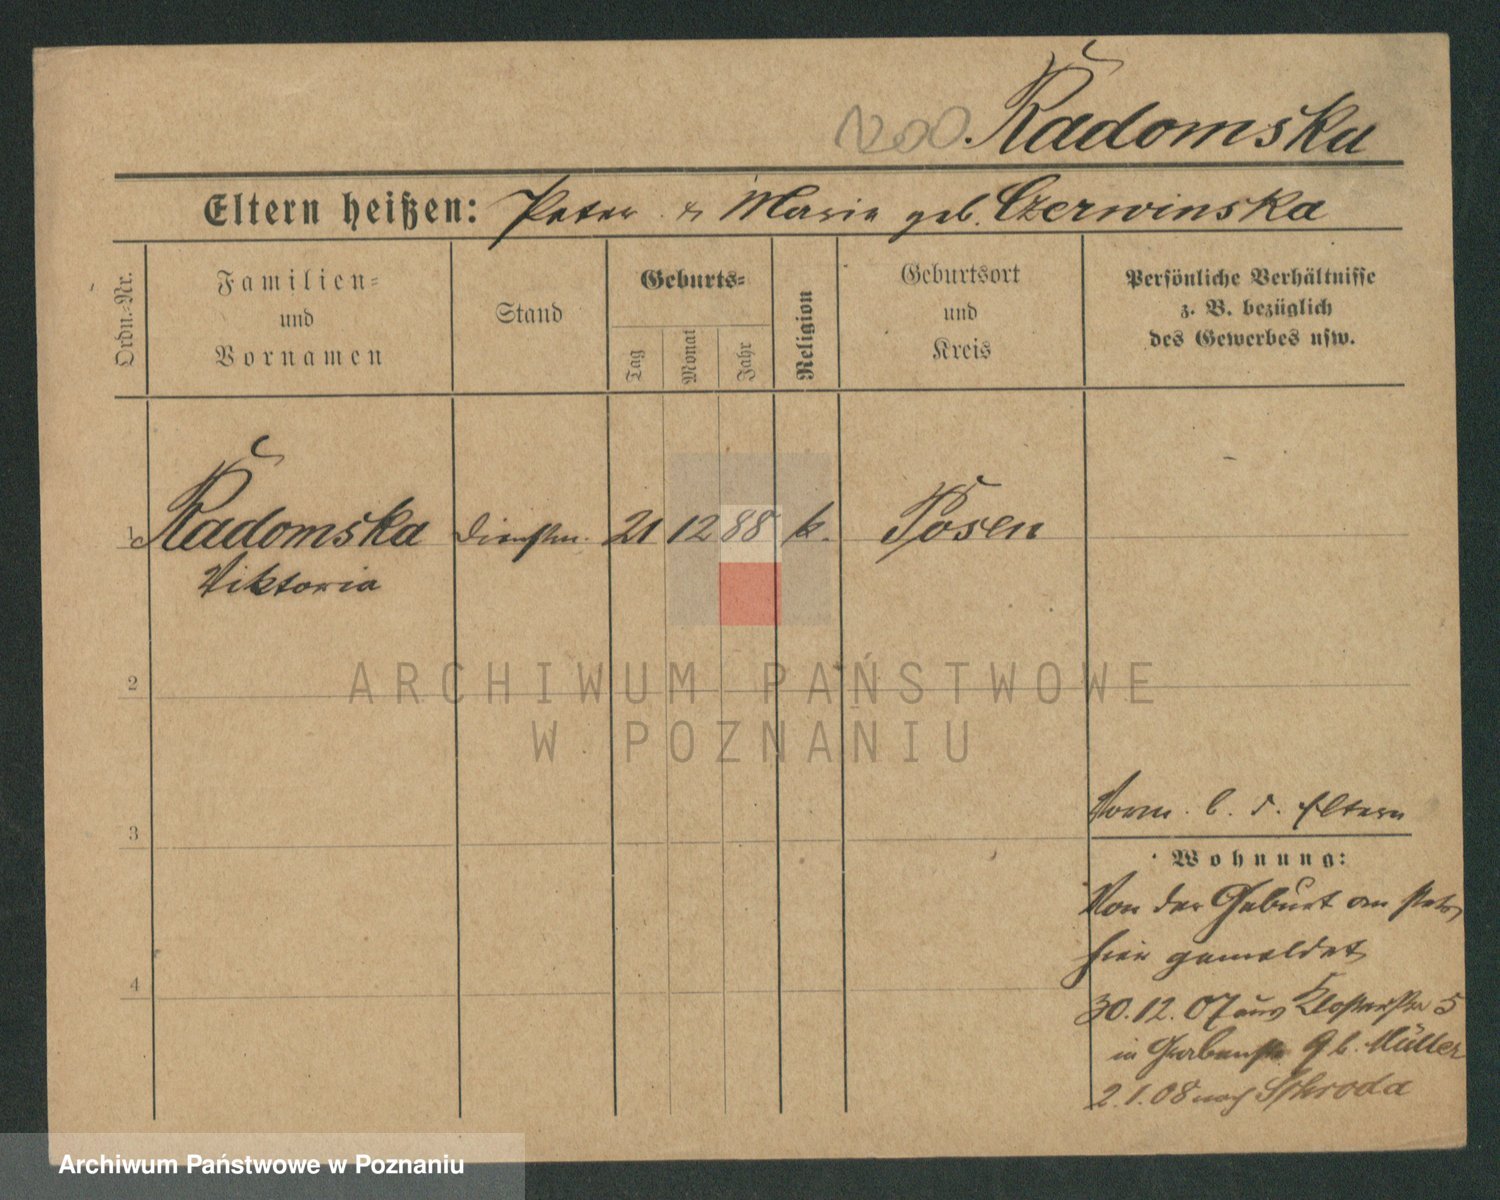 1200. Radomska
Eltern heißen: Peter & Marie geb. Czerwinska
Ordn.-Nr.
Familien-
und
Vornamen
Stand
Geburts-
Tag
Monat
Jahr
Religion
Geburtsort
und
Kreis
Persönliche Verhältnisse
z. B. bezüglich
des Gewerbes usw.
1 Radomska Dienstm. 21 12 88 k. Posen
Viktoria
2
ARCHIWUM PAŃSTWOWE
W POZNANIU
3
4
Vorm. b. d. Eltern
Wohnung:
Von der Geburt an stets
hier gemeldet
30.12.07 aus Klosterstr 5
in Grabenstr 9 b. Müller
2.1.08 nach Schroda
Archiwum Państwowe w Poznaniu